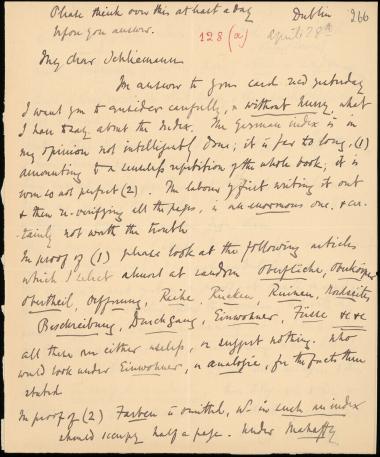 Please think over this at least a day
before you answer.
Dublin
266
128 (a)
April 28th
My dear Schliemann
In answer to your card recd yesterday
I want you to consider carefully, & without hurry, what
I have to say about the Index. The German index is in
my opinion not intelligently done; it is far too long, (1)
amounting to a senseless repetition of the whole book; it is
even so not perfect (2). The labour of first writing it out
& then re-verifying all the pages, is an enormous one, & cer-
-tainly not worth the trouble
In proof of (1) please look at the following articles
which I select almost at random Oberfläche, Oberkörper
Obertheil, Oeffnung, Reihe, Rücken, Ruinen, Nordseite,
Beschreibung, Durchgang, Einwohner, Füsse &c &c
all these are either useless, or suggest nothing. Who
would look under Einwohner, or analogie, for the facts there
stated.
In proof of (2) Farben is omitted, wh. in such an index
should occupy half a page. Under Mahaffy